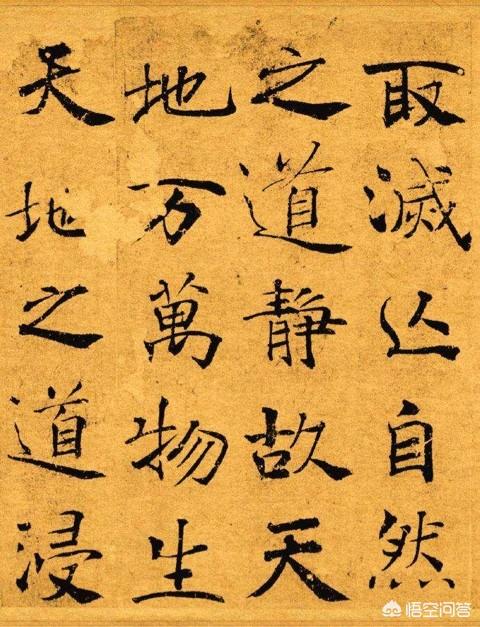 取滅亾自然
之道静故天
地万萬物生
天地之道浸
悟空问答